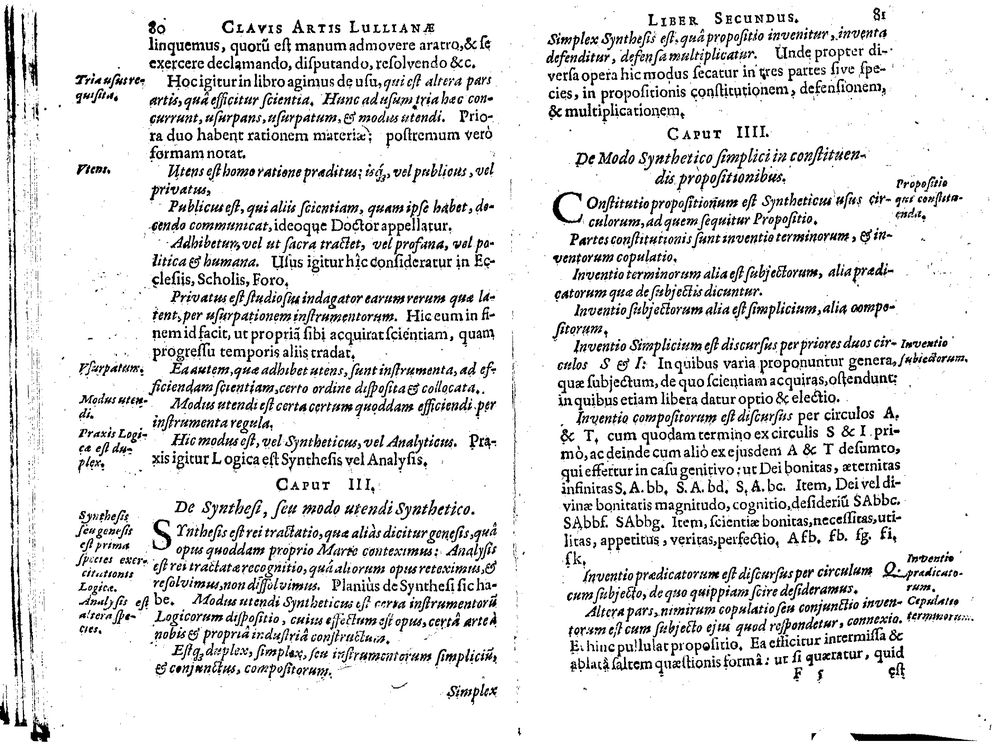 80 CLAVIS ARTIS LULLIANÆ
linquemus, quorũ est manum admovere aratro, & se
exercere declamando, disputando, resolvendo &c.
Tria usus re-
quisita.
Hoc igitur in libro agimus de usu, qui est altera pars
artis, quâ efficitur scientia. Hunc ad usum tria hæc con-
currunt, usurpans, usurpatum, & modus utendi. Prio-
ra duo habent rationem materiæ; postremum verò
formam notat.
Utens.
Utens est homo ratione præditus; isq́;, vel publicus, vel
privatus,
Publicus est, qui aliis scientiam, quam ipse habet, do-
cendo communicat, ideoque Doctor appellatur.
Adhibetur, vel ut sacra tractet, vel profana, vel po-
litica & humana. Usus igitur hîc consideratur in Ec-
clesiis, Scholis, Foro.
Privatus est studiosus indagator earum rerum quæ la-
tent, per usurpationem instrumentorum. Hic eum in fi-
nem id facit, ut propriã sibi acquirat scientiam, quam
progressu temporis aliis tradat.
Vsurpatum.
Ea autem, quæ adhibet utens, sunt instrumenta, ad ef-
ficiendam scientiam, certo ordine disposita & collocata.
Modus uten-
di.
Modus utendi est certa certum quoddam efficiendi per
instrumenta regula.
Praxis Logi-
ca est du-
plex.
Hic modus est, vel Syntheticus, vel Analyticus. Pra-
xis igitur Logica est Synthesis vel Analysis.
CAPUT III.
De Synthesi, seu modo utendi Synthetico.
Synthesis
seu genesis
est prima
species exer-
citationis
Logicæ.
Analysis est
altera spe-
cies.
SYnthesis est rei tractatio, quæ aliàs dicitur genesis, quâ
opus quoddam proprio Marte conteximus: Analysis
est rei tractatæ recognitio, quâ aliorum opus reteximus, &
resolvimus, non dissolvimus. Planiùs de Synthesi sic ha-
be. Modus utendi Syntheticus est certa instrumentorũ
Logicorum dispositio, cuius effectum est opus, certâ arte â
nobis & propriâ industriâ constructum.
Est q́; duplex, simplex, seu instrumentorum simpliciũ,
& conjunctus, compositorum.
Simplex
LIBER SECUNDUS. 81
Simplex Synthesis est, quâ propositio invenitur, inventa
defenditur, defensa multiplicatur. Unde propter di-
versa opera hic modus secatur in tres partes sive spe-
cies, in propositionis constitutionem, defensionem,
& multiplicationem.
CAPUT IIII.
De Modo Synthetico simplici in constituen-
dis propositionibus.
Propositio
qui constitu-
enda.
COnstitutio propositionum est Syntheticus usus cir-
culorum, ad quem sequitur Propositio.
Partes constitutionis sunt inventio terminorum, & in-
ventorum copulatio.
Inventio terminorum alia est subjectorum, alia prædi-
catorum quæ de subjectis dicuntur.
Inventio subjectorum alia est simplicium, alia compo-
sitorum.
Inventio
subiectorum.
Inventio Simplicium est discursus per priores duos cir-
culos S & I: In quibus varia proponuntur genera,
quæ subjectum, de quo scientiam acquiras, ostendunt:
in quibus etiam libera datur optio & electio.
Inventio compositorum est discursus per circulos A.
& T. cum quodam termino ex circulis S & I pri-
mò, ac deinde cum alio ex ejusdem A & T desumto,
qui effertur in casu genitivo: ut Dei bonitas, æternitas
infinitas S. A. bb. S. A. bd. S. A. bc. Item, Dei vel di-
vinæ bonitatis magnitudo, cognitio, desideriũ SAbbc.
SAbbf. SAbbg. Item, scientiæ bonitas, necessitas, uti-
litas, appetitus, veritas, perfectio, A fb. fb. fg. fi,
fk.
Inventio
prædicato-
rum.
Inventio prædicatorum est discursus per circulum Q.
cum subjecto, de quo quippiam scire desideramus.
Copulatio
terminorum.
Altera pars, nimirum copulatio seu conjunctio inven-
torum est cum subjecto ejus quod respondetur, connexio.
Et hinc pullulat propositio. Ea efficitur intermissa &
ablatâ saltem quæstionis formâ: ut si quæratur, quid
F 5 est